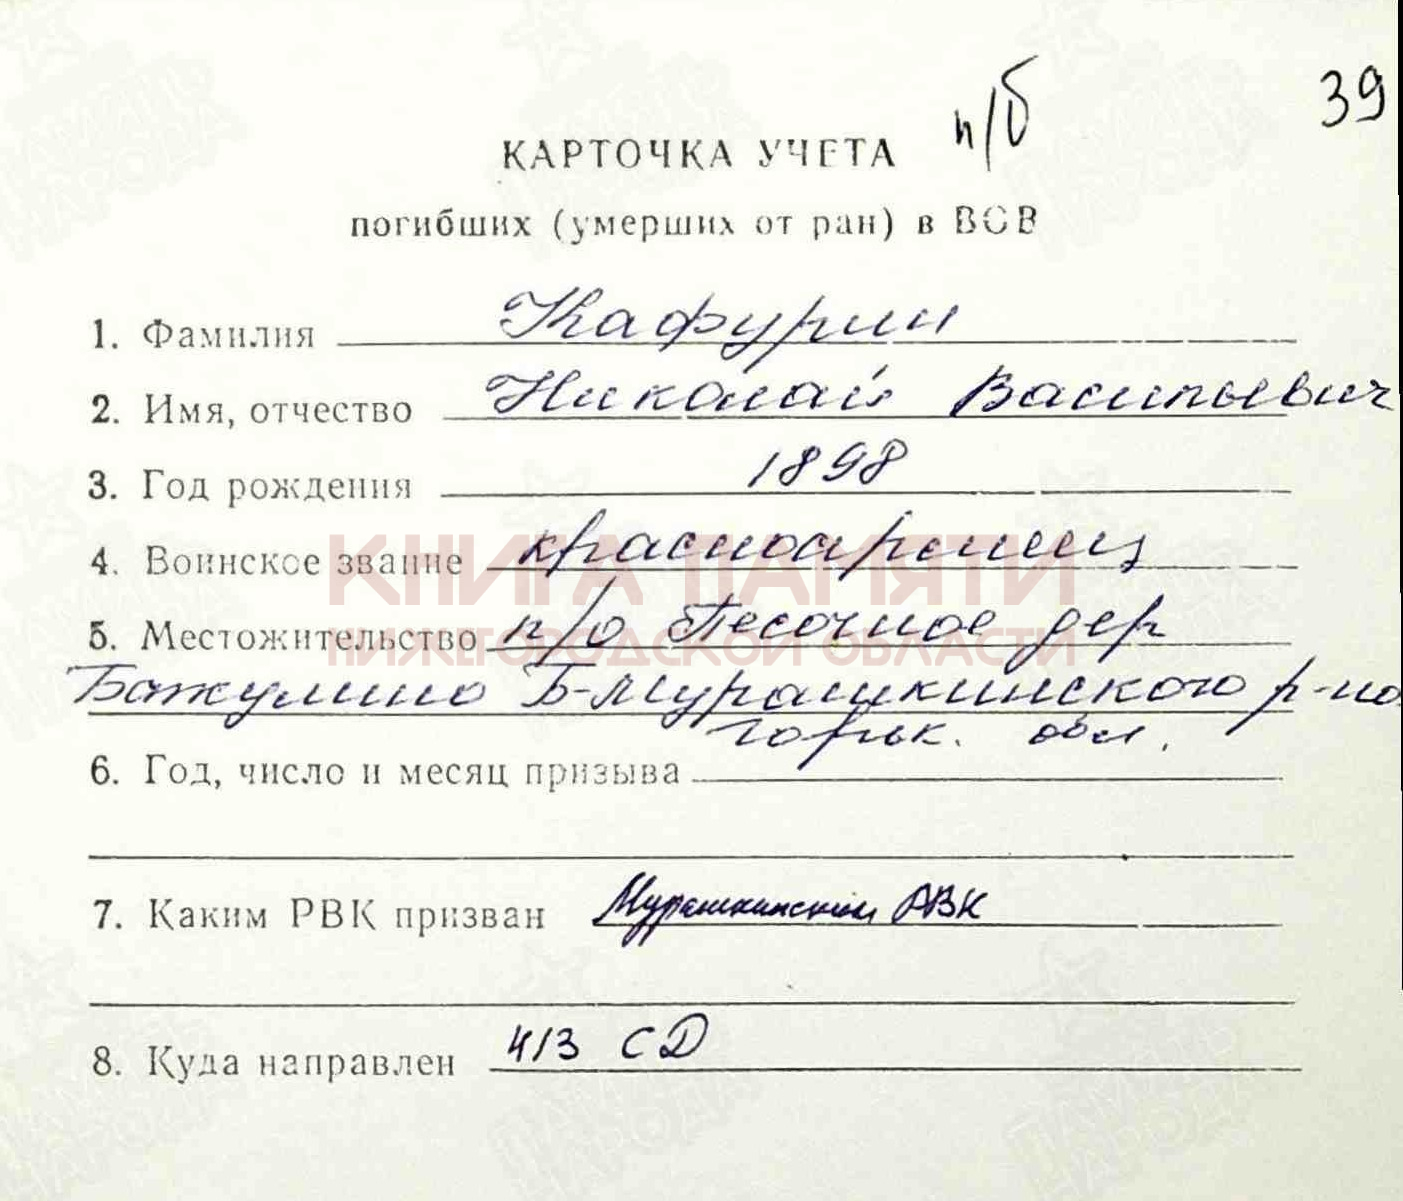 39
п/б
КАРТОЧКА УЧЕТА
погибших (умерших от ран) в ВОВ
1. Фамилия Кафурин
2. Имя, отчество Николай Васильевич
3. Год рождения 1898
4. Воинское звание красноармеец
КНИГА ПАМЯТИ
5. Местожительство п/о Песочное дер
НИЖЕГОРОДСКОЙ ОБЛАСТИ
Бажулино Б-Мурашкинского р-на
Горьк. обл.
6. Год, число и месяц призыва
7. Каким РВК призван Мурашкинским РВК
8. Куда направлен 413 СД